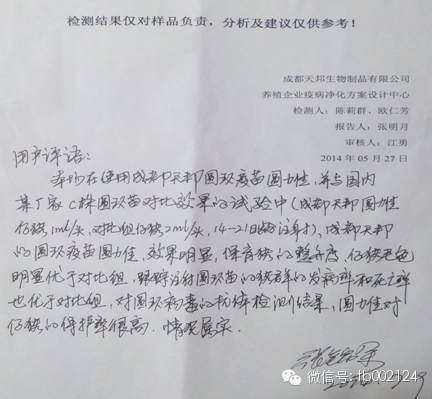 检测结果仅对样品负责，分析及建议仅供参考！
成都天邦生物制品有限公司
养殖企业疫病净化方案设计中心
检测人：陈莉群、欧仁芳
报告人：张明月
审核人：江勇
2014 年 05 月 27 日
用户评语：
本场在使用成都天邦圆环疫苗圆力佳，并与国内
某厂家C株圆环苗对比效果的试验中（成都天邦圆力佳
仔猪1ml/头，对比组仔猪2ml/头，14-21日龄注射），成都天邦
的圆环疫苗圆力佳，效果明显，保育猪的整齐度，仔猪毛色
明显优于对比组，跟踪注射圆环苗的猪群的发病率和死亡率
也优于对比组，对圆环病毒的抗体检测结果，圆力佳对
仔猪的保护率很高。情况属实。
微信号: tb002124